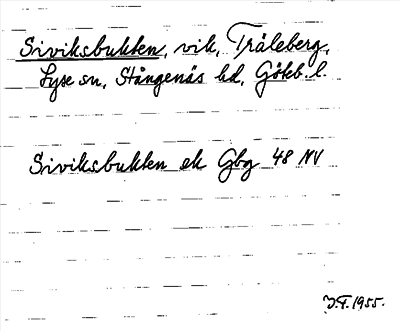 Siviksbukten, vik, Tråleberg,
Lyse sn, Stångenäs hd, Göteb. l.
Siviksbukten ek Gbg 48 NV
J.F. 1955.